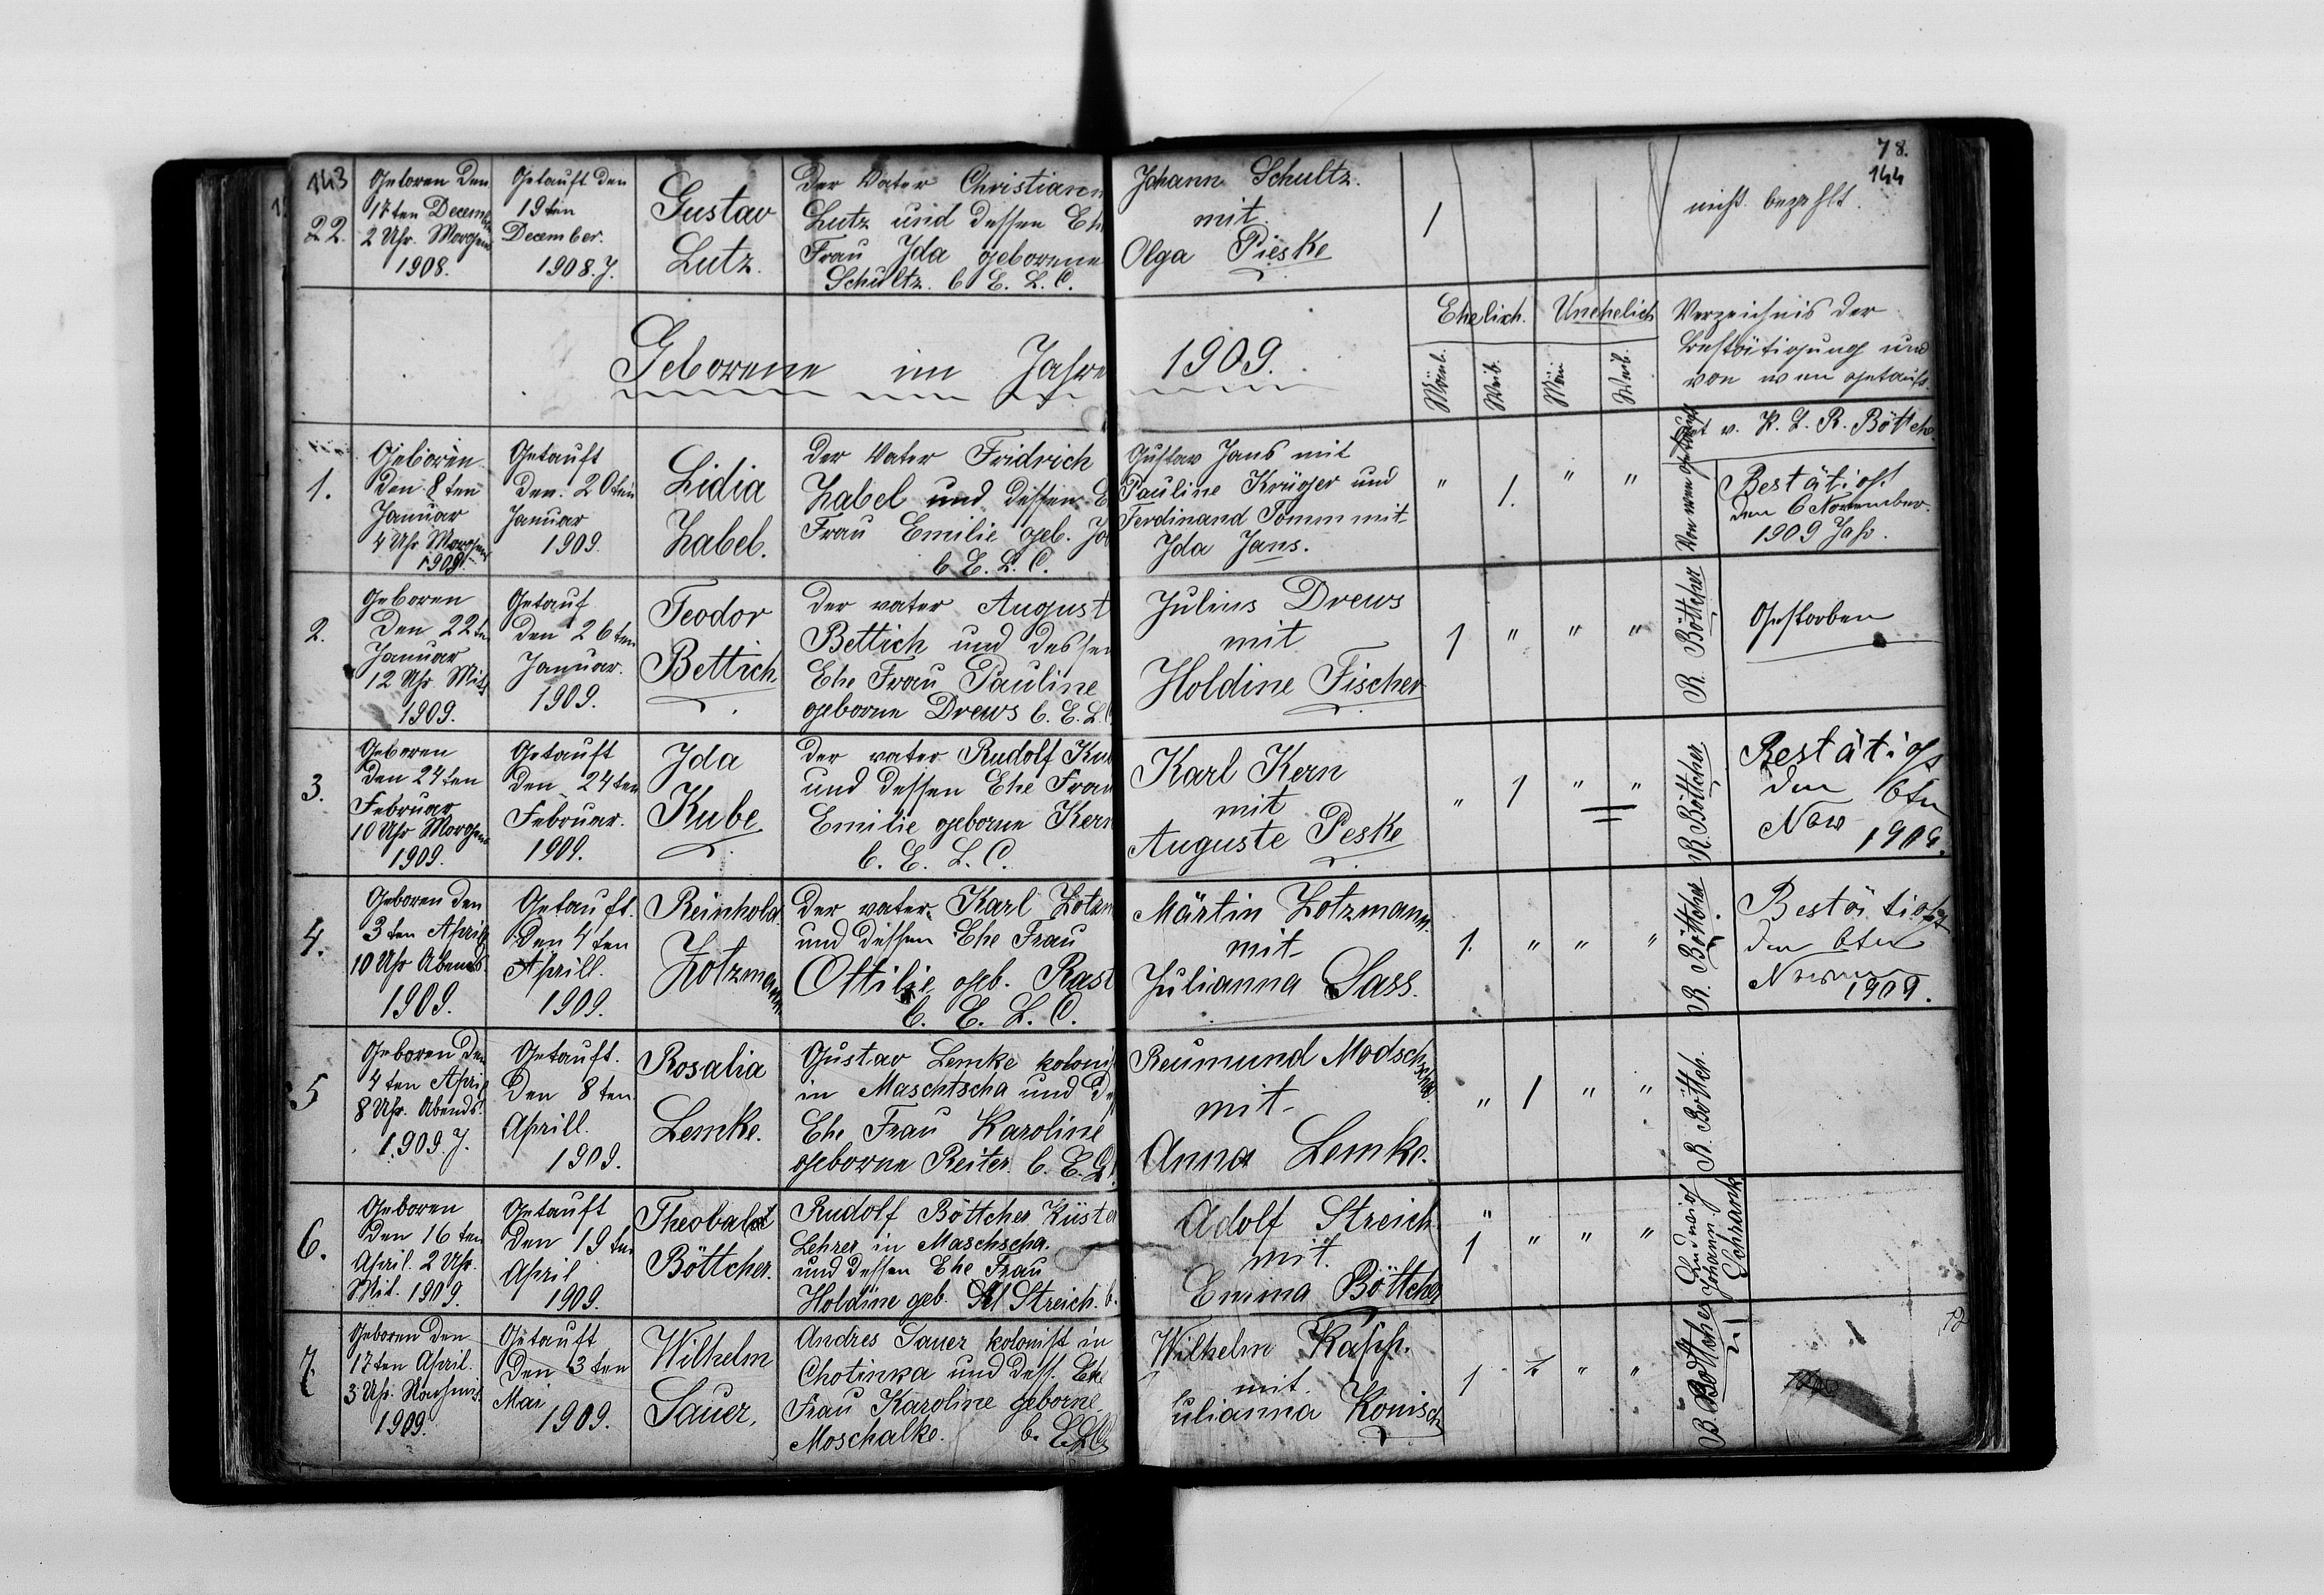 143
78.
144
22.
Geboren den
17ten Decemb
2 Uhr. Morgens
1908.
Getauft den
19ten
December.
1908. J.
Gustav
Lutz.
Der Vater Christiann
Lutz und dessen Eh
Frau Ida geborene
Schultz. b. E. L. C.
Johann Schultz.
mit.
Olga Pieske
1
nicht bezahlt.
Geborene im Jahre 1909.
Ehelich. Unehelich
Mänl. Weib. Män Weib.
Verzeichnis der
Bestätigung und
von wem getauft.
1.
Geboren
den 8ten
Januar
4 Uhr Morgens
1909.
Getauft
den. 20ten
Januar
1909.
Lidia
Zabel.
Der Vater Fridrich
Zabel und dessen E
Frau Emilie geb. Ja
b E. L. C.
Gustav Jans mit
Pauline Krüger und
Ferdinand Tomm mit
Ida Jans.
" 1. " "
Von wem getauft
v. K. L. R. Böttche
Bestätigt
den 6 November.
1909 Jahr.
2.
Geboren
den 22ten
Januar
12 Uhr. Mitt
1909.
Getauf
den 26ten
Januar.
1909.
Teodor
Bettich
Der vater August
Bettich und dessen
Ehe Frau Pauline
geborne Drews b. E. L.
Julius Drews
mit
Holdine Fischer
1 " " "
R. Böttcher
Gestorben
3.
Geboren
den 24ten
Februar
10 Uhr Morgens
1909.
Getauft
den 24ten
Februar.
1909.
Ida
Kube
Der vater Rudolf Ku
und dessen Ehe Frau
Emilie geborne Kern
b. E. L. C.
Karl Kern
mit
Auguste Peske
" 1 " "
R. Böttcher
Bestätigt
den 6ten
Now
1909.
4.
Geboren den
3ten April
10 Uhr Abends
1909.
Getauft.
Den 4ten
Aprill.
1909.
Reinhold
Zotzmann
Der vater. Karl Zotzm
und dessen Ehe Frau
Ottilie geb. Rast
b. E. L. C.
Märtin Zotzmann.
mit
Julianna Sass.
1. " " "
R. Böttcher
Bestätigt
den 6ten
1909.
5
Geboren den
4ten April
8 Uhr. Abends.
1909. J.
Getauft.
Den 8ten
Aprill.
1909.
Rosalia
Lemke.
Gustav Lemke koloni
in Maschtscha und de
Ehe Frau Karoline
geborne Reiter. b. E. L.
Reumund
mit
Anna Lemke.
" 1 " "
R. Böttch.
6.
Geboren
den 16ten
April. 2 Uhr.
Mit. 1909.
Getauft
Den 19ten
April
1909.
Theobald
Böttcher.
Rudolf Böttcher Küste
Lehrer in Maschscha.
und dessen Ehe Frau
Holdine geb. Streich. b.
Adolf Streich
mit.
Emma Böttcher
"
1 " " "
Ludwig
Johann.
7.
Geboren den
17ten April.
3 Uhr. Nachmit.
1909.
Getauft
Den 3ten
Mai
1909.
Wilhelm
Sauer,
Andres Sauer kolonist in
Chotinka und dess. Ehe
Frau Karoline geborne.
Moschalke. b. E L C
Wilhelm Kapp.
mit.
Julianna Konisch
1 " "
B. Böttcher